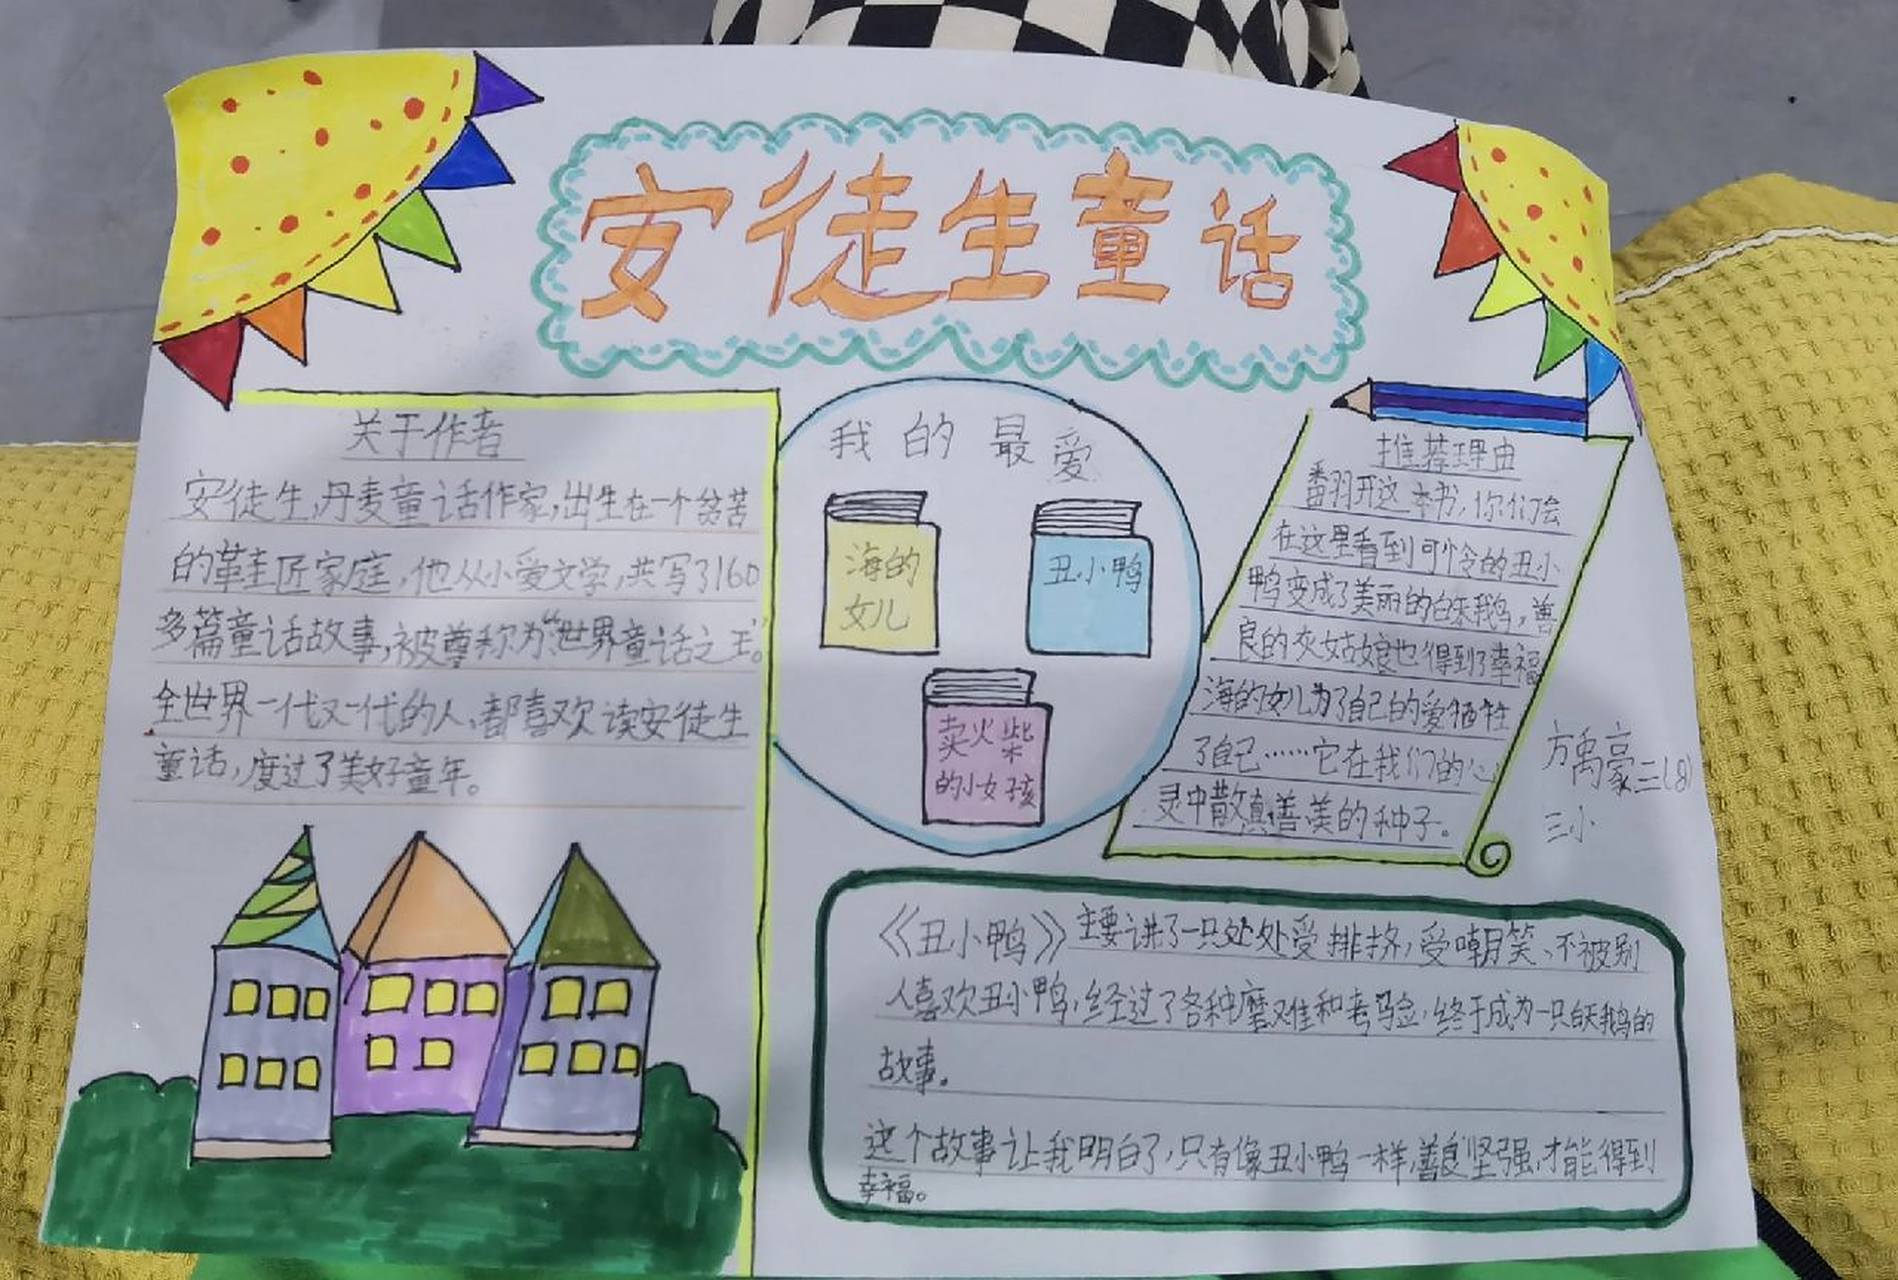 安徒生童话
关于作者
安徒生,丹麦童话作家,出生在一个贫苦
的鞋匠家庭,他从小爱文学,共写了160
多篇童话故事,被尊称为“世界童话之王”。
全世界一代又一代的人,都喜欢读安徒生
童话,度过了美好童年。
我的最爱
海的
女儿
丑小鸭
卖火柴
的小女孩
推荐理由
翻开这本书,你们会
在这里看到可怜的丑小
鸭变成了美丽的白天鹅,善
良的灰姑娘也得到了幸福
海的女儿为了自己的爱牺牲
了自己……它在我们的心
灵中散真善美的种子。
方禹豪二(8)
三小
《丑小鸭》主要讲了一只处处受排挤,受嘲笑、不被别
人喜欢丑小鸭,经过了各种磨难和考验,终于成为一只白天鹅的
故事。
这个故事让我明白了,只有像丑小鸭一样,善良坚强,才能得到
幸福。